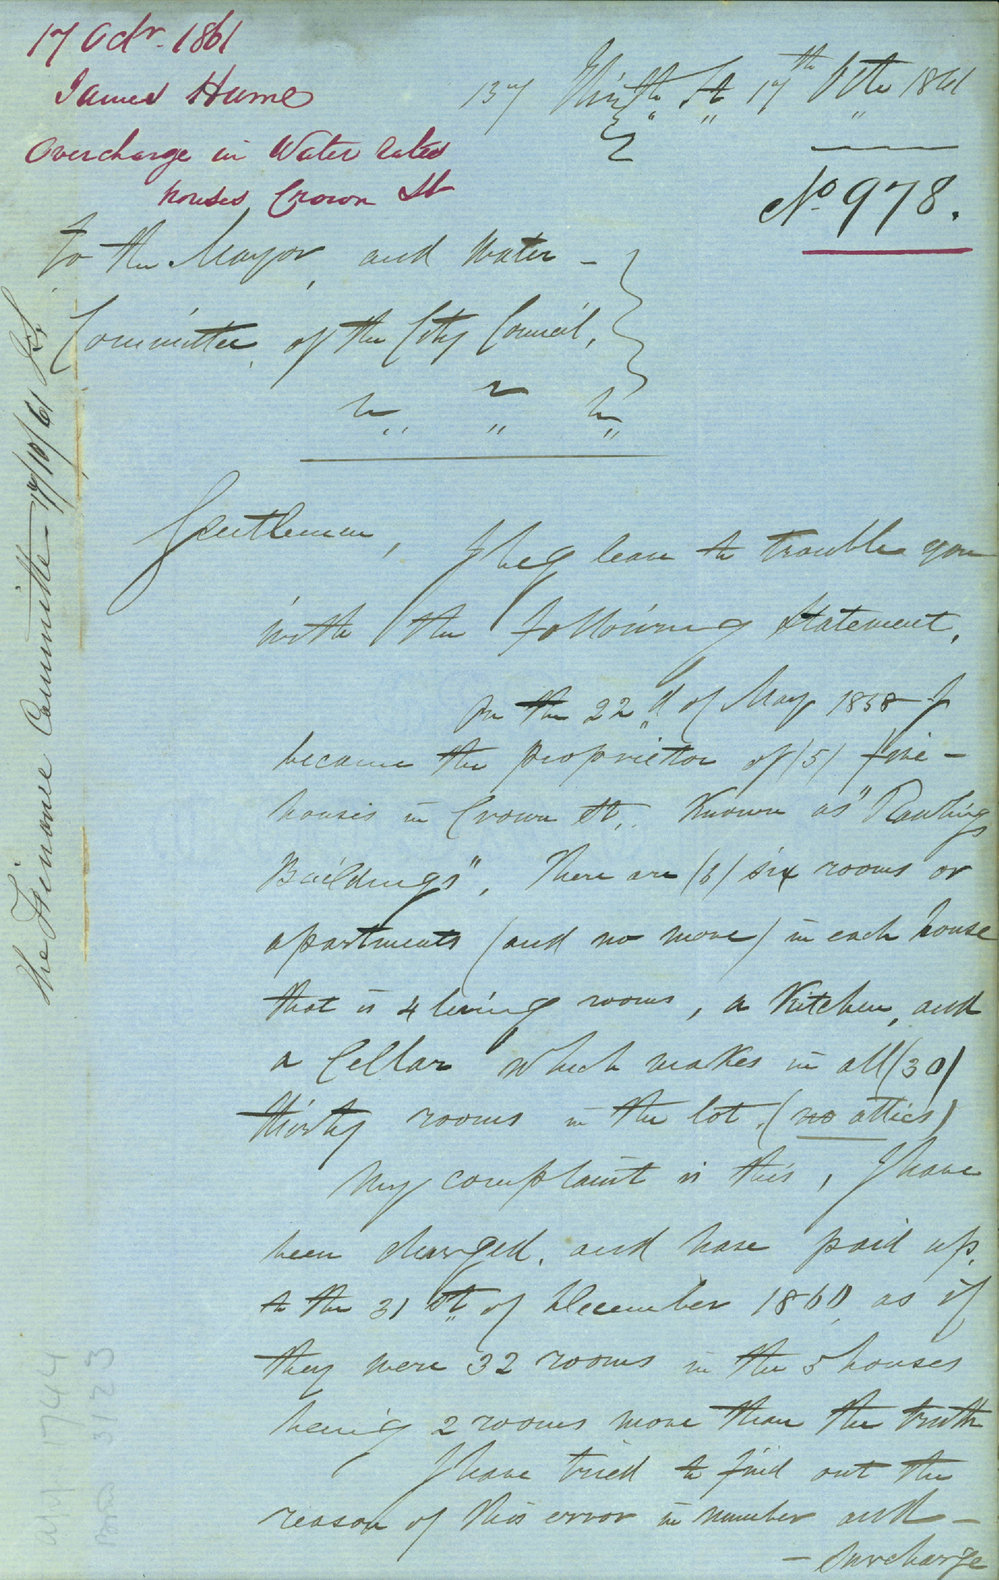 17 Octr. 1861
James Hume
Overcharge in Water rates
houses, Crown St
137 St 17th Octr 1861
No 978.
To the Mayor, and Water -
Committee, of the City Council,
Gentlemen, I beg leave to trouble you
with the following statement,
On the 22nd of May 1858 I
became the proprietor of (5) five -
houses in Crown St, Known as "Rawlings
Buildings", There are (6) six rooms or
apartments (and no more) in each house
that is 4 living rooms, a Kitchen, and
a Cellar which makes in all (30)
thirty rooms in the lot. (no attics)
My complaint is this, I have
been charged, and have paid up,
to the 31st of December 1860 as if
they were 32 rooms in the 5 houses
being 2 rooms more than the truth
I have tried to find out the
reason of this error in number and -
- surcharge
The Finance Committee - 17/10/61
1744
3123